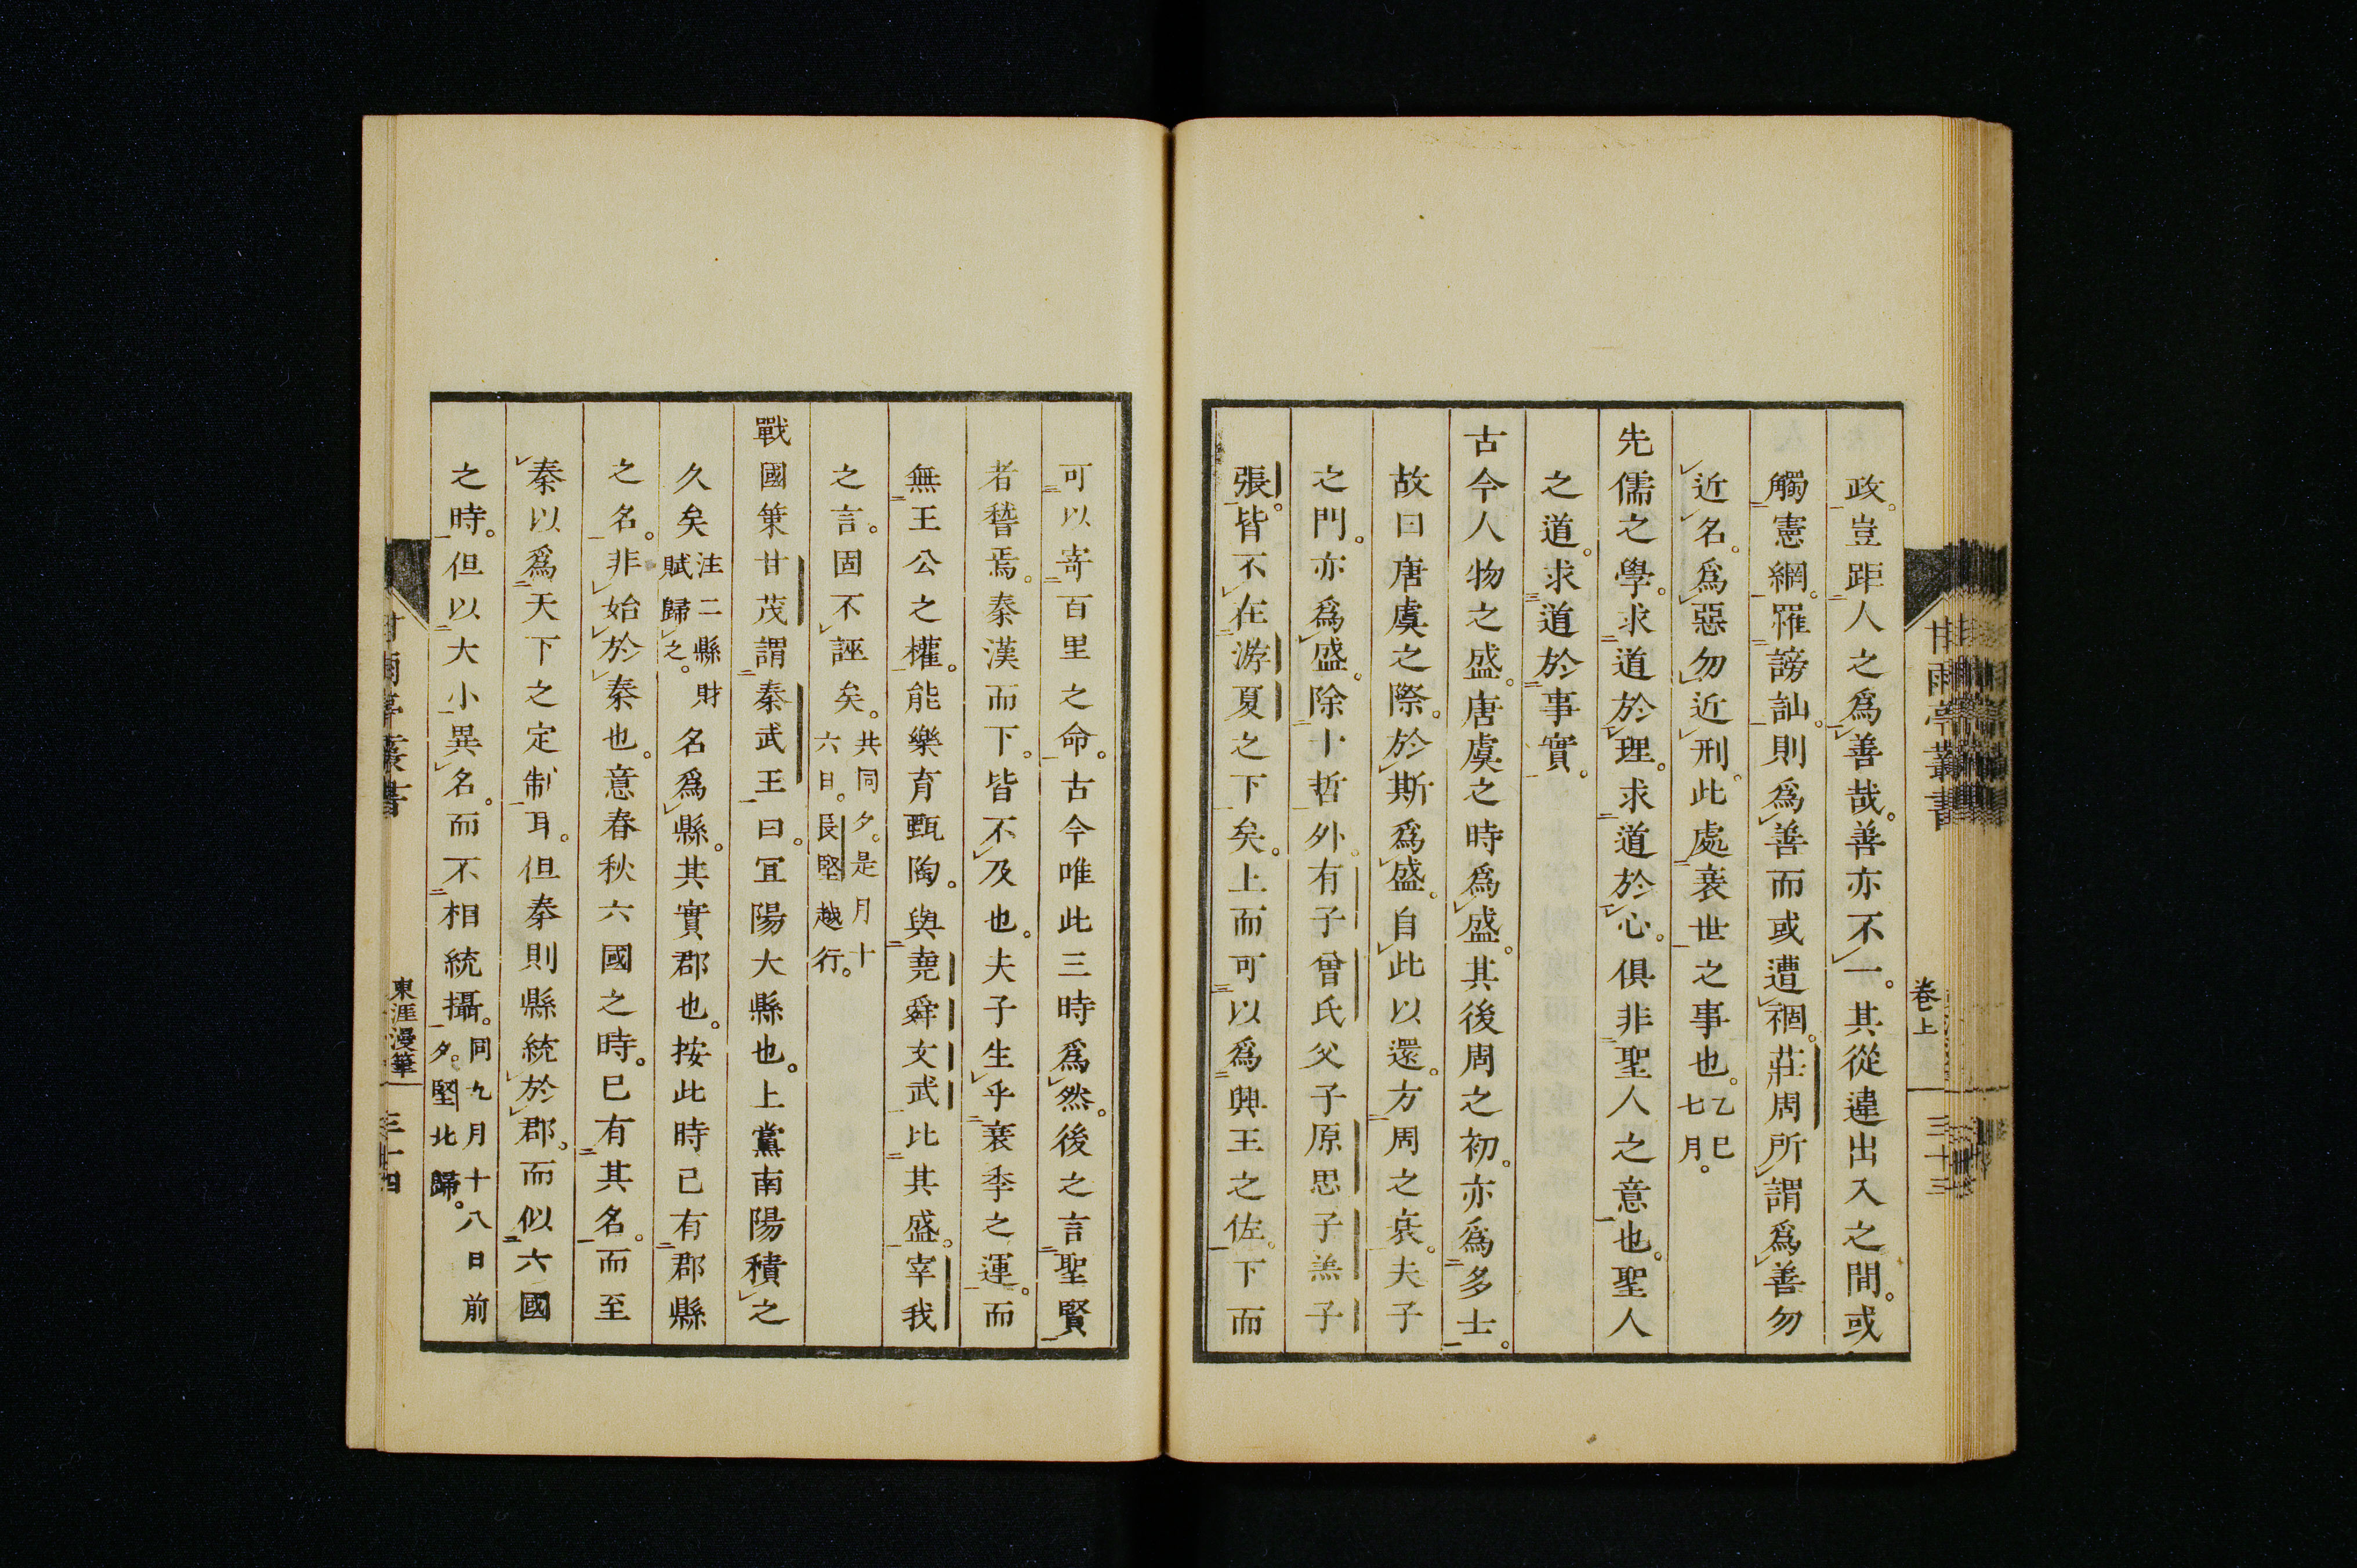 政。豈距人之爲善哉。善亦不一。其從違出入之間。或
觸憲網。罹謗訕。則爲善而或遭禍。莊周所謂爲善勿
近名。爲惡勿近刑。此處衰世之事也。乙巳七月。
先儒之學。求道於理。求道於心。俱非聖人之意也。聖人
之道。求道於事實。
古今人物之盛。唐虞之時爲盛。其後周之初。亦爲多士。
故曰唐虞之際。於斯爲盛。自此以還。方周之衰。夫子
之門。亦爲盛。除十哲外。有子曾氏父子原思子羔子
張。皆不在游夏之下矣。上而可以爲興王之佐。下而
甘雨亭叢書
卷上
三十三
可以寄百里之命。古今唯此三時爲然。後之言聖賢
者嵆焉。秦漢而下。皆不及也。夫子生乎衰季之運。而
無王公之權。能樂育甄陶。與堯舜文武比其盛。宰我
之言。固不誣矣。共同夕。是月十六日。長堅越行。
戰國策甘茂謂秦武王曰。宜陽大縣也。上黨南陽積之
久矣注二縣財賦歸之。名爲縣。其實郡也。按此時已有郡縣
之名。非始於秦也。意春秋六國之時。已有其名。而至
秦以爲天下之定制耳。但秦則縣統於郡。而似六國
之時。但以大小異名。而不相統攝。同九月十八日前夕。堅北歸。
甘雨亭叢書
東涯漫筆
三十四